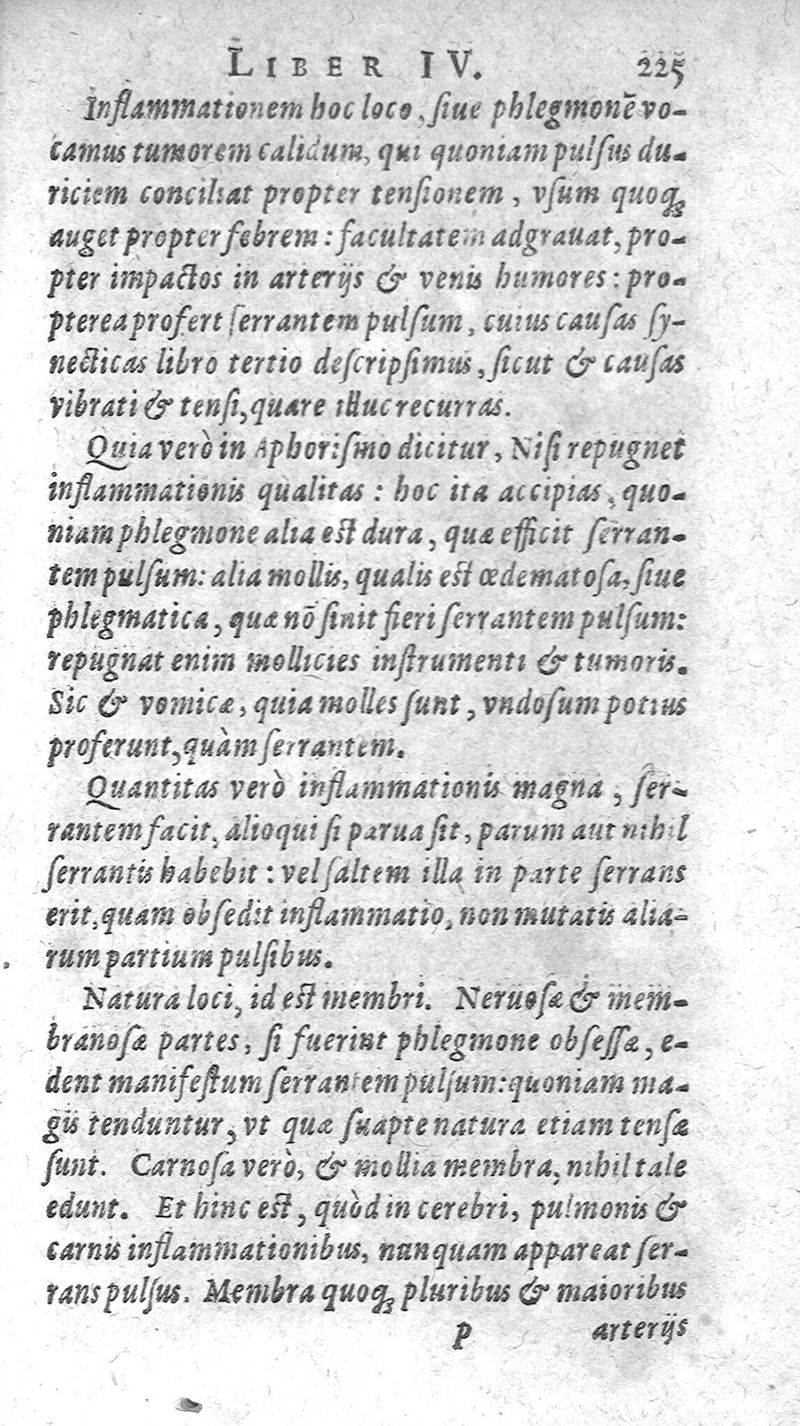 LIBER IV. 225
Inflammationem hoc loco, ſiue phlegmonē vo-
camus tumorem calidum, qui quoniam pulſus du-
riciem conciliat propter tenſionem, vſum quoq;
auget propter febrem: facultatem adgrauat, pro-
pter impactos in arterijs & venis humores: pro-
pterea profert ſerrantem pulſum, cuius cauſas ſy-
necticas libro tertio deſcripſimus, ſicut & cauſas
vibrati & tenſi, quare illuc recurras.
Quia verò in Aphoriſmo dicitur, Niſi repugnet
inflammationis qualitas: hoc ita accipias, quo-
niam phlegmone alia eſt dura, quæ efficit ſerran-
tem pulſum: alia mollis, qualis eſt œdematoſa, ſiue
phlegmatica, quæ nō ſinit fieri ſerrantem pulſum:
repugnat enim mollicies inſtrumenti & tumoris.
Sic & vomicæ, quia molles ſunt, vndoſum potius
proferunt, quàm ſerrantem.
Quantitas verò inflammationis magna, ſer-
rantem facit, alioqui ſi parua ſit, parum aut nihil
ſerrantis habebit: vel ſaltem illa in parte ſerrans
erit, quam obſedit inflammatio, non mutatis alia-
rum partium pulſibus.
Natura loci, id eſt membri. Neruoſæ & mem-
branoſæ partes, ſi fuerint phlegmone obſeſſæ, e-
dent manifeſtum ſerrantem pulſum: quoniam ma-
gis tenduntur, vt quæ ſuapte natura etiam tenſæ
ſunt. Carnoſa verò, & mollia membra, nihil tale
edunt. Et hinc eſt, quòd in cerebri, pulmonis &
carnis inflammationibus, nunquam appareat ſer-
rans pulſus. Membra quoq; pluribus & maioribus
p arterijs